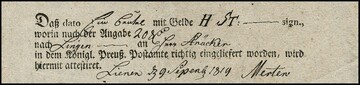 Daß dato Ein Beutel mit Gelde H ST: — sign.,
worin nach der Angabe 20 
nach Lingen — an Herr Stricker
in dem Königl. Preuß. Postamte richtig eingeliefert worden, wird
hiermit attestiret. Lienen d 9 1819 Merten